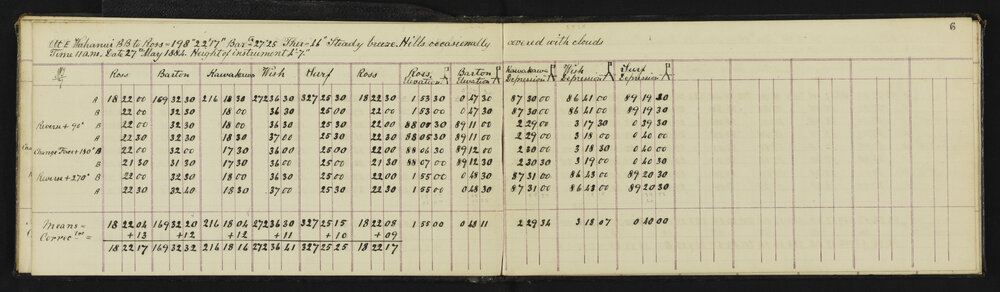 6
At E Wahanui BB to Ross = 198° 22' 17" Bar 27·25 Ther 46° Steady breeze. Hills occasionally covered with clouds
Time 11 am. Date 27th May 1884. Height of instrument 4'7"
Ross Barton Kawakawa Wish Hurf Ross Ross Elevation Barton Elevation Kawakawa Depression Wish Depression Hurf Depression
A 18 22 00 169 32 30 216 18 30 272 36 30 327 25 30 18 22 30 1 53 30 0 47 30 87 30 00 86 41 00 89 19 30
B 22 00 32 30 18 00 36 30 25 00 22 00 1 53 00 0 47 30 87 30 00 86 41 00 89 19 30
Revers + 90° A 22 00 32 30 18 00 36 30 25 30 22 00 88 04 30 89 11 00 2 29 00 3 17 30 0 39 30
B 22 30 32 30 18 30 37 00 25 30 22 30 88 05 30 89 11 00 2 29 00 3 18 00 0 40 00
Change Face + 180° B 22 00 32 00 17 30 36 00 25 00 22 00 88 06 30 89 12 00 2 30 00 3 18 30 0 40 00
A 21 30 31 30 17 30 36 00 25 00 21 30 88 07 00 89 12 30 2 30 30 3 19 00 0 40 30
Revers + 270° B 22 00 32 30 18 00 36 30 25 00 22 00 1 55 00 0 48 30 87 31 00 86 43 00 89 20 30
A 22 30 32 40 18 30 37 00 25 30 22 30 1 55 00 0 48 30 87 31 00 86 43 00 89 20 30
Means = 18 22 04 169 32 20 216 18 04 272 36 30 327 25 15 18 22 08 1 55 00 0 48 11 2 29 34 3 18 07 0 40 00
Correc tns = +13 +12 +12 +11 +10 +09
18 22 17 169 32 32 216 18 16 272 36 41 327 25 25 18 22 17